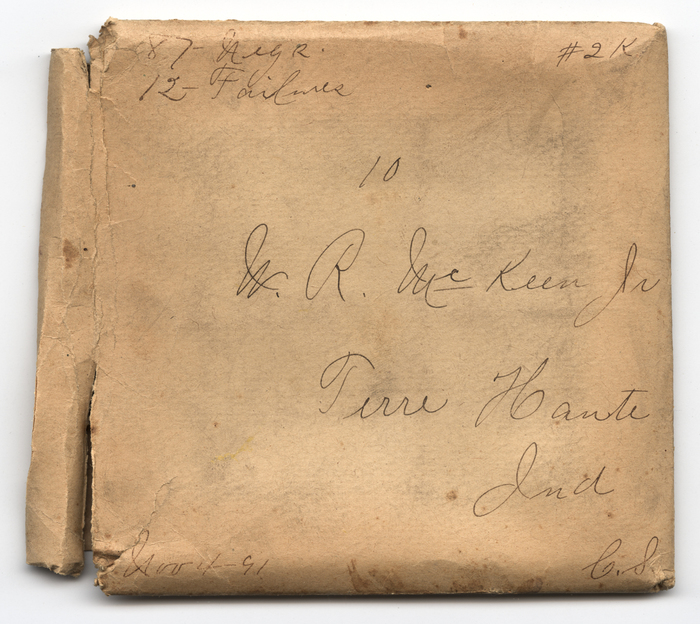 87- Negs.
#2 K
12- Failures
10
W. R. McKeen Jr
Terre Haute
Ind
Nov 4-91
C.S.